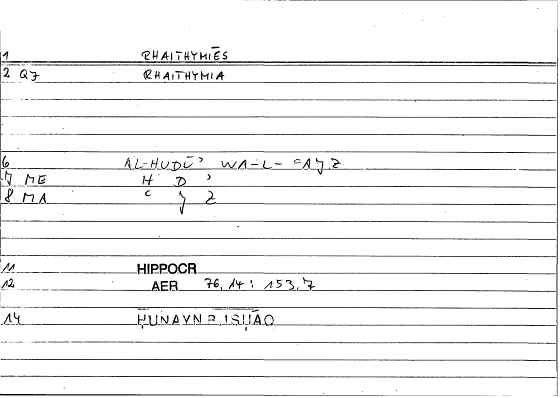 1 RHAITHYMIĒS
2 Q7 RHAITHYMIA
6 AL-HUDŪʾ WA-L-ʿAǦZ
7 ME H D ʾ
8 MA ʿ Ǧ Z
11 HIPPOCR
12 AER 76,14: 153,7
14 ḤUNAYN B ISḤĀQ